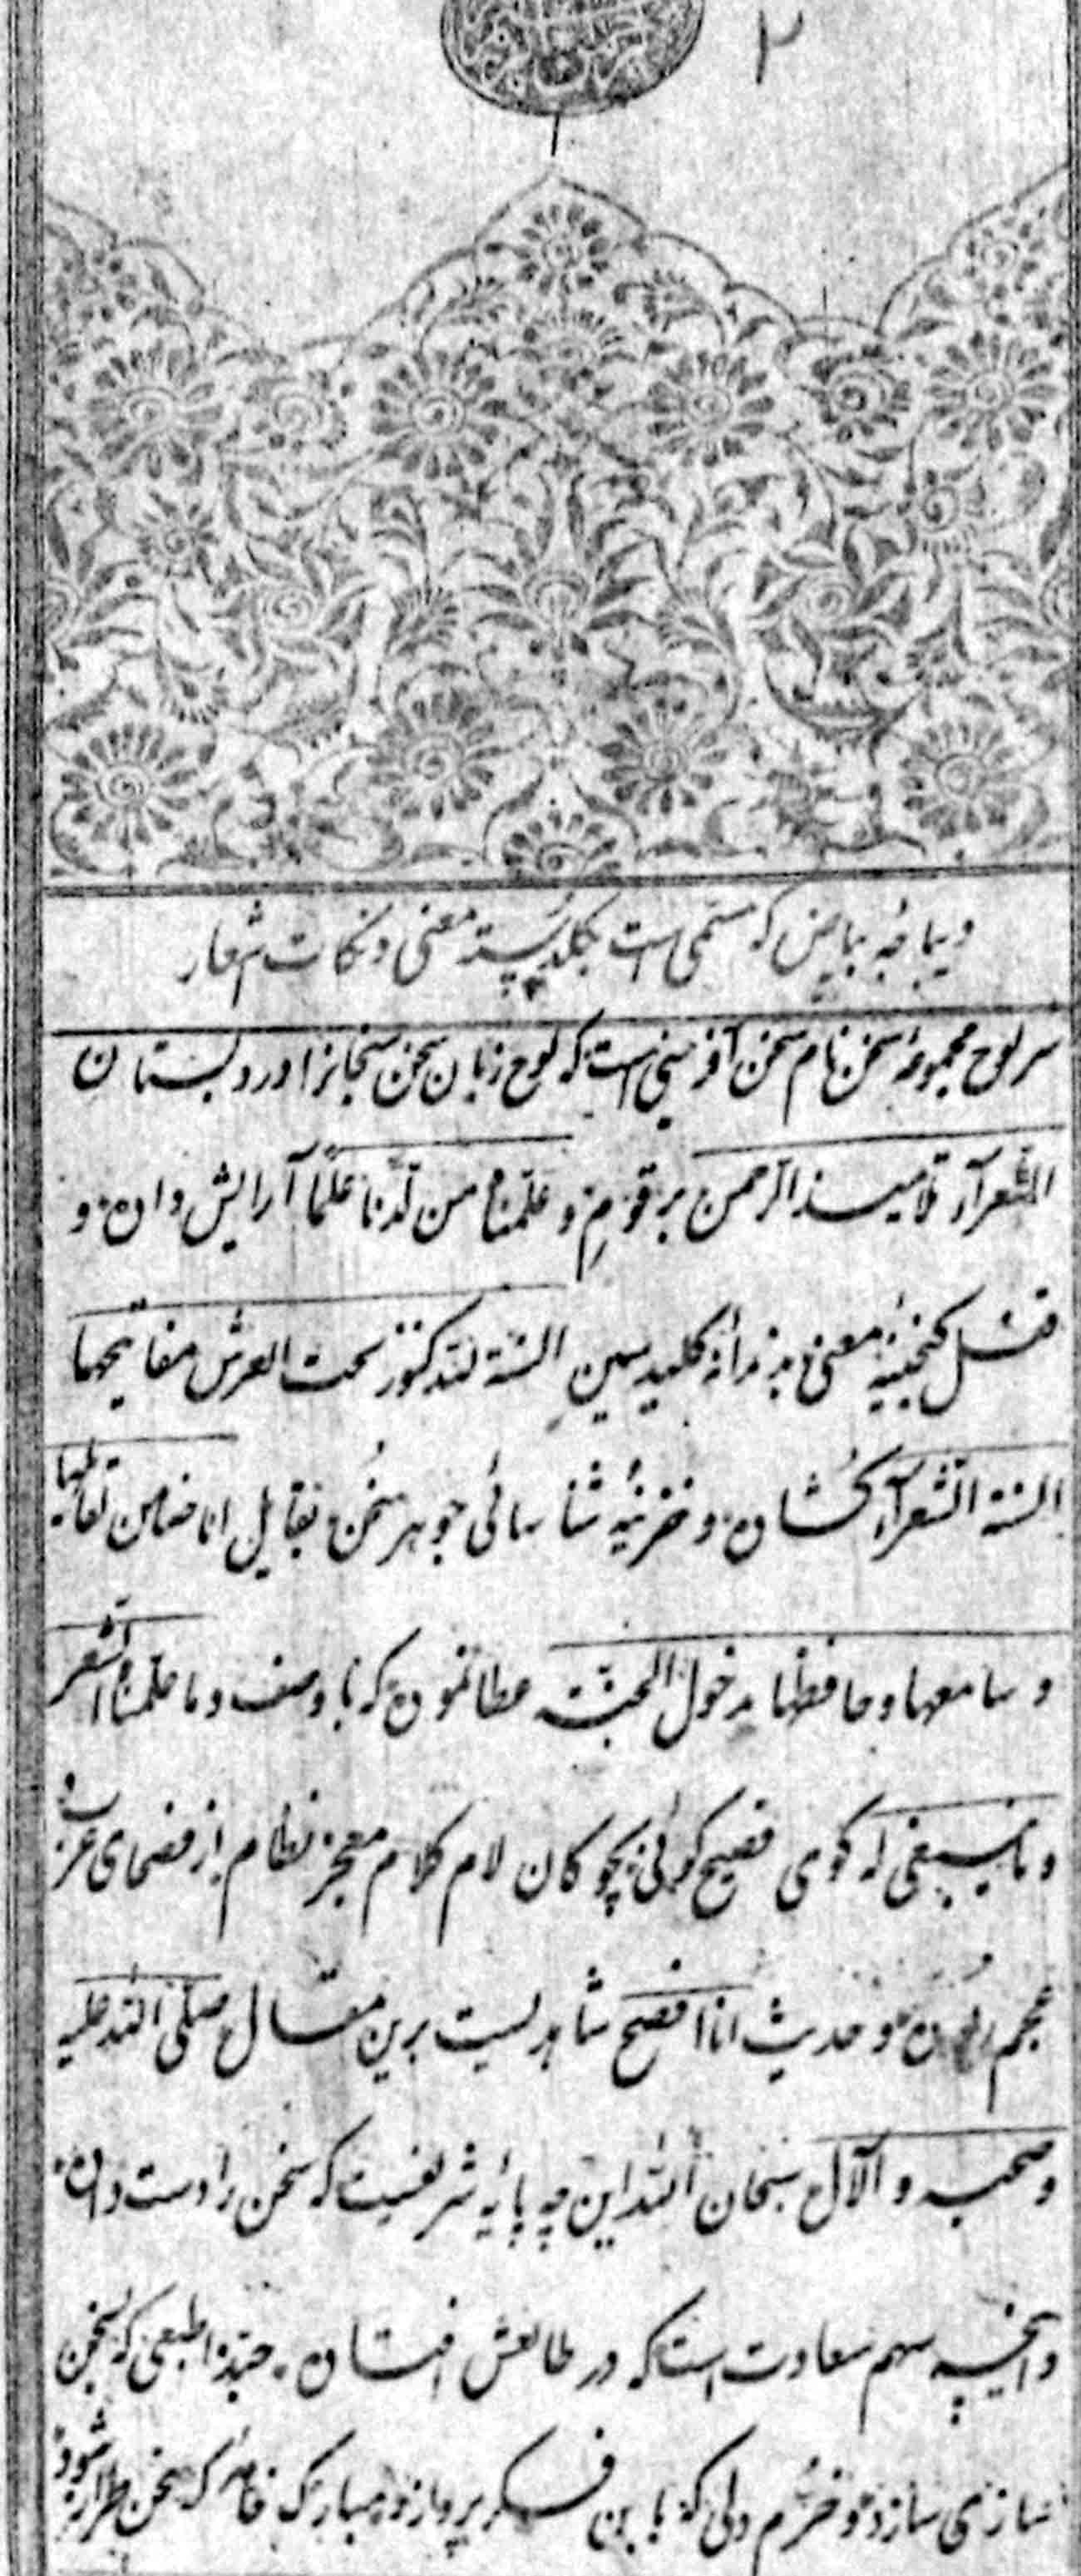 ۲
دیباچه بیاض که مسمی است بگلدسته معنی و نکات شعار
سر لوح مجموعه سخن نام سخن آفرینی است که لوح زبان سخن سنجانرا در دبستان
الشعرآء تلامیذ الرحمن برقوم و علمناه من لدنا علما آرایش داده و
قفل گنجینه معنی بدندانه کلید سین السنة لله کنوز تحت العرش مفاتیحها
السنة الشعرآء گشاده و خزینه شناسائی جوهر سخن بقایل انا ضامن
و سامعها و حافظها بدخول الجنة عطا نموده که با وصف و ما علمناه الشعر
و ما ینبغی له گوی فصیح گوئی بچوکان لام کلام معجز نظام از فصحای عرب و
عجم ربوده و حدیث انا افصح شاهدیست برین مقال صلی الله علیه
و صحبه و الآل سبحان الله این چه پایه شریفیست که سخن را دست داده
و اینچه سهم سعادت است که در طالعش افتاده حبذا طبعی که بسخن
سازی سازد و خرم دلی که باین فکر پردازد مبارک خامه که سخن طراز شود